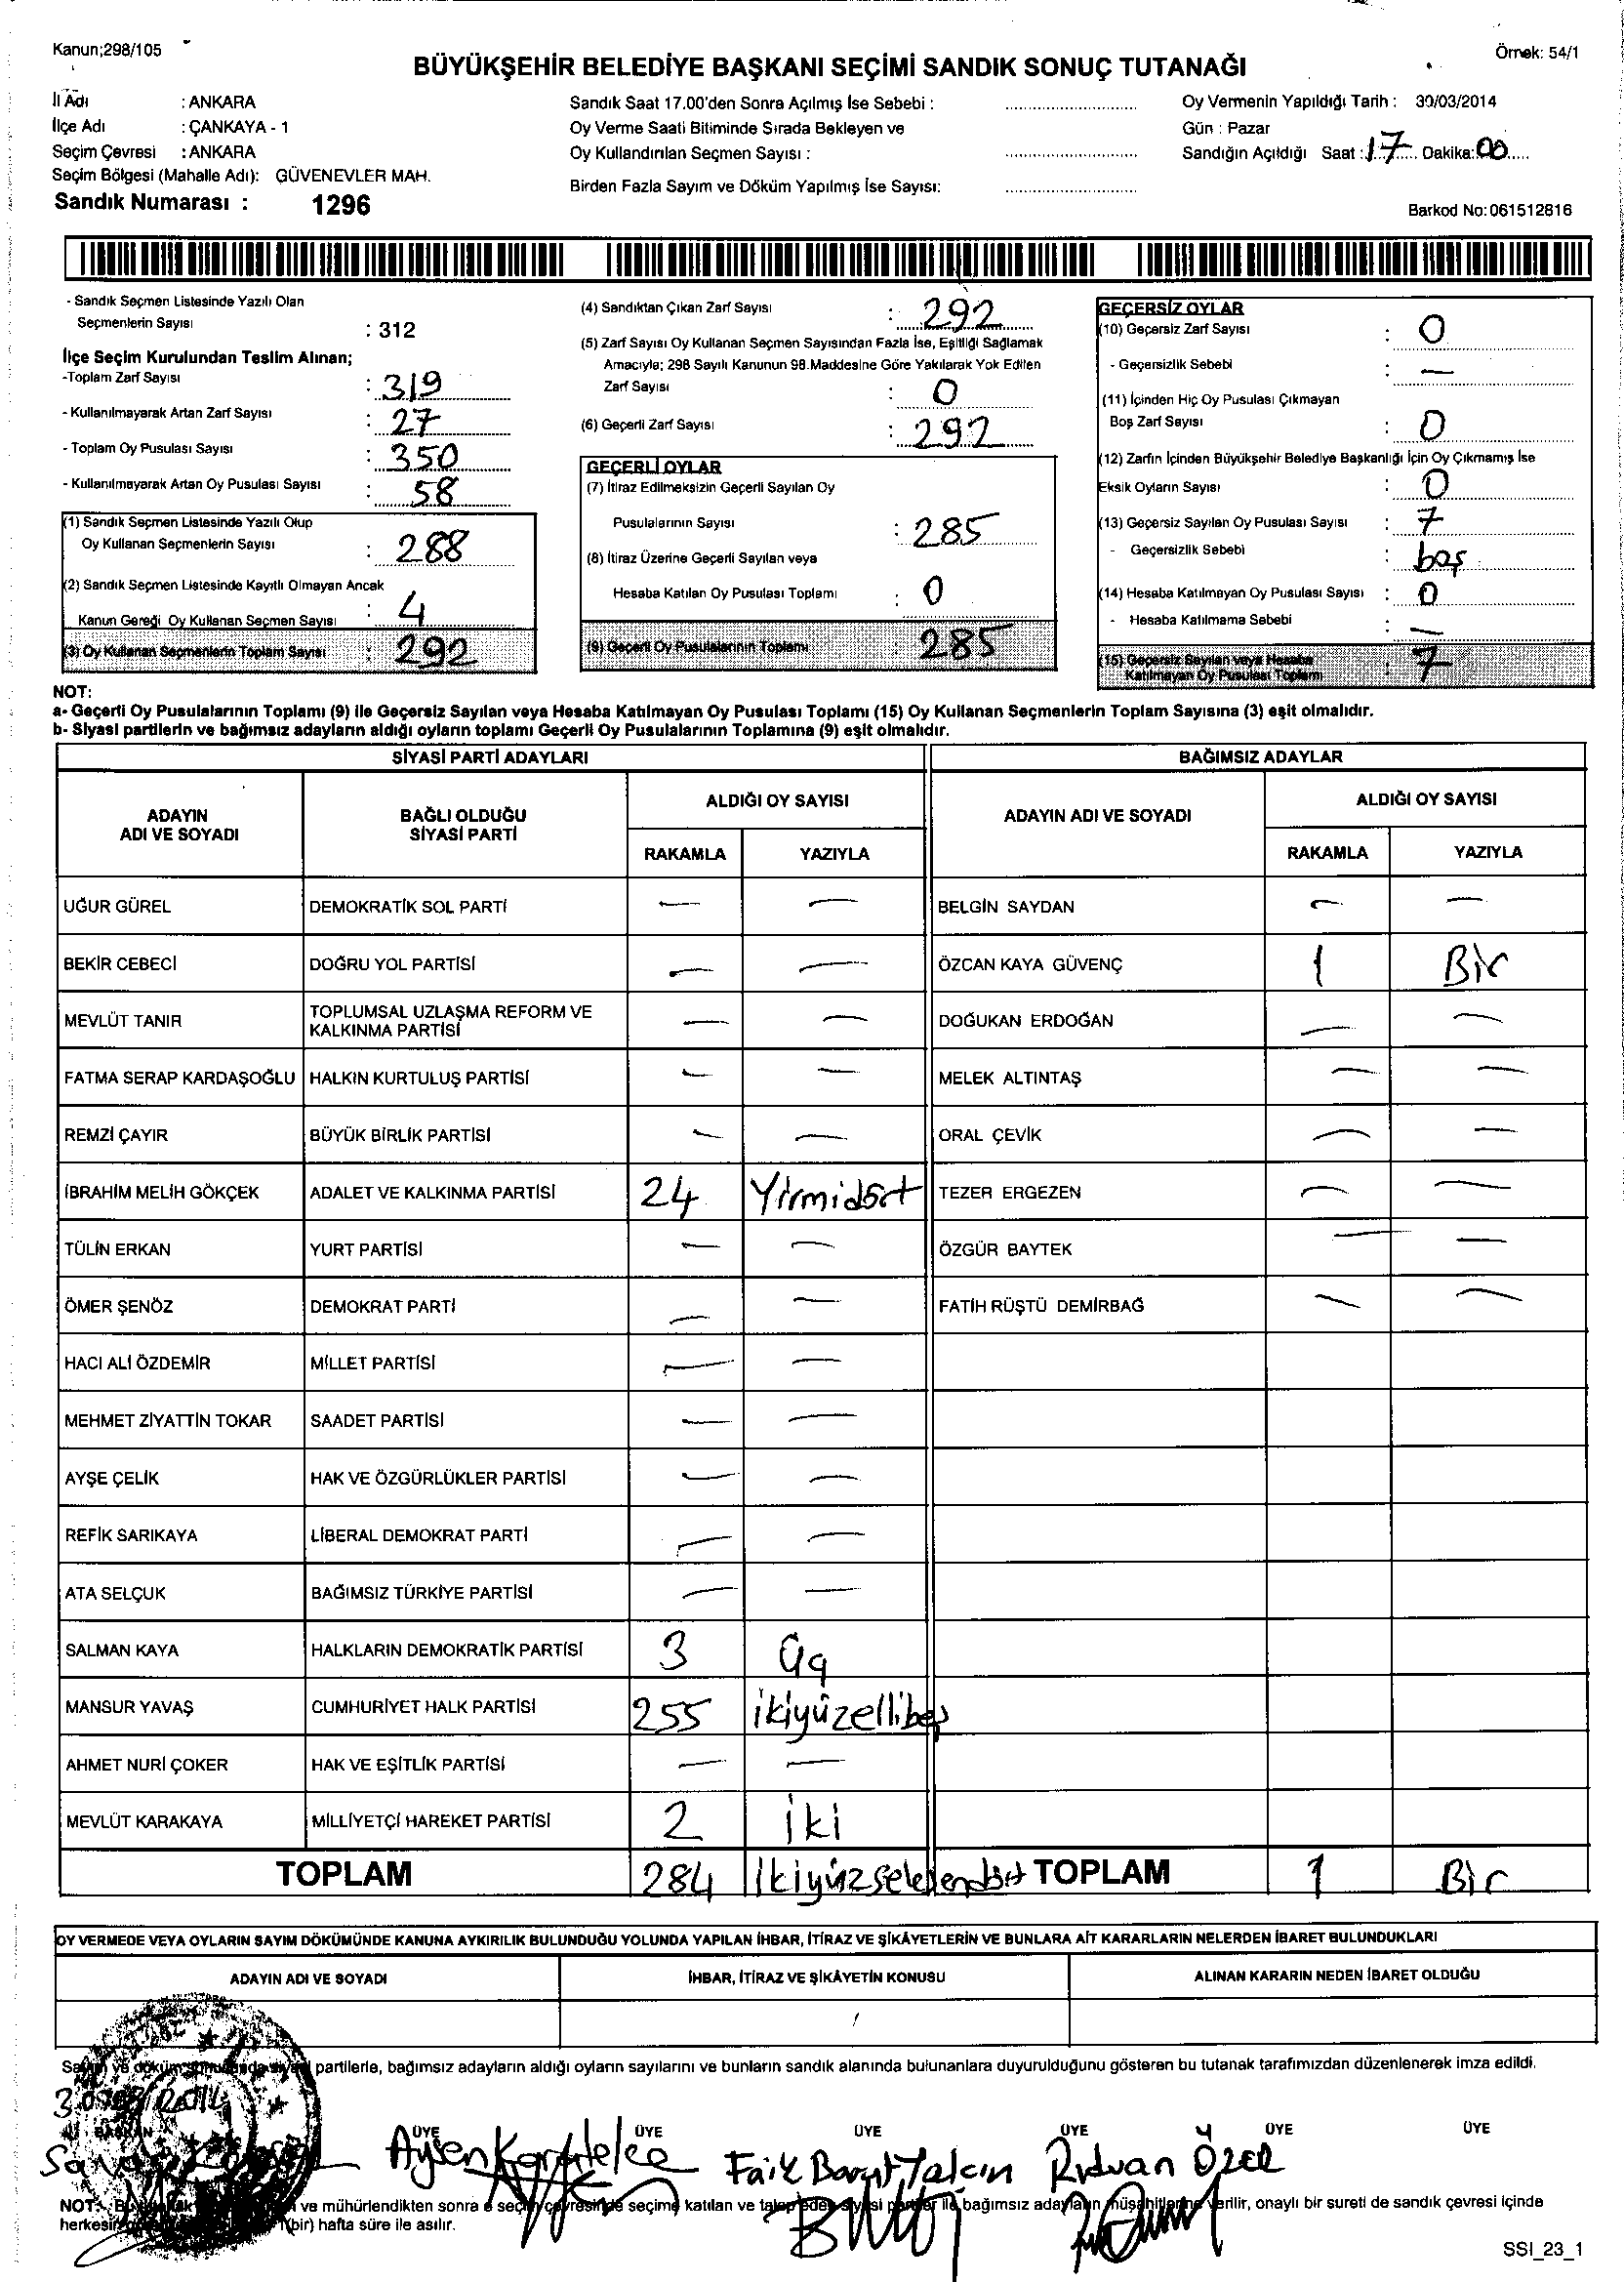 Kanun;298/105
Örnek: 54/1
BÜYÜKŞEHİR BELEDİYE BAŞKANI SEÇİMİ SANDIK SONUÇ TUTANAĞI
İl Adı : ANKARA
İlçe Adı : ÇANKAYA - 1
Seçim Çevresi : ANKARA
Seçim Bölgesi (Mahalle Adı): GÜVENEVLER MAH.
Sandık Numarası : 1296
Sandık Saat 17.00'den Sonra Açılmış İse Sebebi :
Oy Verme Saati Bitiminde Sırada Bekleyen ve
Oy Kullandırılan Seçmen Sayısı :
Birden Fazla Sayım ve Döküm Yapılmış İse Sayısı:
Oy Vermenin Yapıldığı Tarih : 30/03/2014
Gün : Pazar
Sandığın Açıldığı Saat : 17 Dakika: 00
Barkod No: 061512816
- Sandık Seçmen Listesinde Yazılı Olan
Seçmenlerin Sayısı : 312
İlçe Seçim Kurulundan Teslim Alınan;
-Toplam Zarf Sayısı : 319
- Kullanılmayarak Artan Zarf Sayısı : 27
- Toplam Oy Pusulası Sayısı : 350
- Kullanılmayarak Artan Oy Pusulası Sayısı : 58
(1) Sandık Seçmen Listesinde Yazılı Olup
Oy Kullanan Seçmenlerin Sayısı : 288
(2) Sandık Seçmen Listesinde Kayıtlı Olmayan Ancak
Kanun Gereği Oy Kullanan Seçmen Sayısı : 4
(3) Oy Kullanan Seçmenlerin Toplam Sayısı : 292
(4) Sandıktan Çıkan Zarf Sayısı : 292
(5) Zarf Sayısı Oy Kullanan Seçmen Sayısından Fazla İse, Eşitliği Sağlamak
Amacıyla; 298 Sayılı Kanunun 98.Maddesine Göre Yakılarak Yok Edilen
Zarf Sayısı : 0
(6) Geçerli Zarf Sayısı : 292
GEÇERLİ OYLAR
(7) İtiraz Edilmeksizin Geçerli Sayılan Oy
Pusulalarının Sayısı : 285
(8) İtiraz Üzerine Geçerli Sayılan veya
Hesaba Katılan Oy Pusulası Toplamı : 0
(9) Geçerli Oy Pusulalarının Toplamı : 285
GEÇERSİZ OYLAR
(10) Geçersiz Zarf Sayısı : 0
- Geçersizlik Sebebi : —
(11) İçinden Hiç Oy Pusulası Çıkmayan
Boş Zarf Sayısı : 0
(12) Zarfın İçinden Büyükşehir Belediye Başkanlığı İçin Oy Çıkmamış İse
Eksik Oyların Sayısı : 0
(13) Geçersiz Sayılan Oy Pusulası Sayısı : 7
- Geçersizlik Sebebi : boş
(14) Hesaba Katılmayan Oy Pusulası Sayısı : 0
- Hesaba Katılmama Sebebi : —
(15) Geçersiz Sayılan veya Hesaba
Katılmayan Oy Pusulası Toplamı : 7
NOT:
a- Geçerli Oy Pusulalarının Toplamı (9) ile Geçersiz Sayılan veya Hesaba Katılmayan Oy Pusulası Toplamı (15) Oy Kullanan Seçmenlerin Toplam Sayısına (3) eşit olmalıdır.
b- Siyasi partilerin ve bağımsız adayların aldığı oyların toplamı Geçerli Oy Pusulalarının Toplamına (9) eşit olmalıdır.
SİYASİ PARTİ ADAYLARI BAĞIMSIZ ADAYLAR
ADAYIN ADI VE SOYADI BAĞLI OLDUĞU SİYASİ PARTİ ALDIĞI OY SAYISI RAKAMLA YAZIYLA ADAYIN ADI VE SOYADI ALDIĞI OY SAYISI RAKAMLA YAZIYLA
UĞUR GÜREL DEMOKRATİK SOL PARTİ — — BELGİN SAYDAN — —
BEKİR CEBECİ DOĞRU YOL PARTİSİ — — ÖZCAN KAYA GÜVENÇ 1 Bir
MEVLÜT TANIR TOPLUMSAL UZLAŞMA REFORM VE KALKINMA PARTİSİ — — DOĞUKAN ERDOĞAN — —
FATMA SERAP KARDAŞOĞLU HALKIN KURTULUŞ PARTİSİ — — MELEK ALTINTAŞ — —
REMZİ ÇAYIR BÜYÜK BİRLİK PARTİSİ — — ORAL ÇEVİK — —
İBRAHİM MELİH GÖKÇEK ADALET VE KALKINMA PARTİSİ 24 Yirmidört TEZER ERGEZEN — —
TÜLİN ERKAN YURT PARTİSİ — — ÖZGÜR BAYTEK — —
ÖMER ŞENÖZ DEMOKRAT PARTİ — — FATİH RÜŞTÜ DEMİRBAĞ — —
HACI ALİ ÖZDEMİR MİLLET PARTİSİ — —
MEHMET ZİYATTİN TOKAR SAADET PARTİSİ — —
AYŞE ÇELİK HAK VE ÖZGÜRLÜKLER PARTİSİ — —
REFİK SARIKAYA LİBERAL DEMOKRAT PARTİ — —
ATA SELÇUK BAĞIMSIZ TÜRKİYE PARTİSİ — —
SALMAN KAYA HALKLARIN DEMOKRATİK PARTİSİ 3 Üç
MANSUR YAVAŞ CUMHURİYET HALK PARTİSİ 255 ikiyüzellibeş
AHMET NURİ ÇOKER HAK VE EŞİTLİK PARTİSİ — —
MEVLÜT KARAKAYA MİLLİYETÇİ HAREKET PARTİSİ 2 İki
TOPLAM 284 TOPLAM 1 Bir
OY VERMEDE VEYA OYLARIN SAYIM DÖKÜMÜNDE KANUNA AYKIRILIK BULUNDUĞU YOLUNDA YAPILAN İHBAR, İTİRAZ VE ŞİKÂYETLERİN VE BUNLARA AİT KARARLARIN NELERDEN İBARET BULUNDUKLARI
ADAYIN ADI VE SOYADI İHBAR, İTİRAZ VE ŞİKÂYETİN KONUSU ALINAN KARARIN NEDEN İBARET OLDUĞU
partilerle, bağımsız adayların aldığı oyların sayılarını ve bunların sandık alanında bulunanlara duyurulduğunu gösteren bu tutanak tarafımızdan düzenlenerek imza edildi.
BAŞKAN ÜYE ÜYE ÜYE ÜYE ÜYE ÜYE
Ayşen Faik Rıdvan ÖZER
NOT: ve mühürlendikten sonra seçim çevresinde seçime katılan ve talep eden siyasi partiler ile bağımsız adayların müşahitlerine verilir, onaylı bir sureti de sandık çevresi içinde
(bir) hafta süre ile asılır.
SSI_23_1